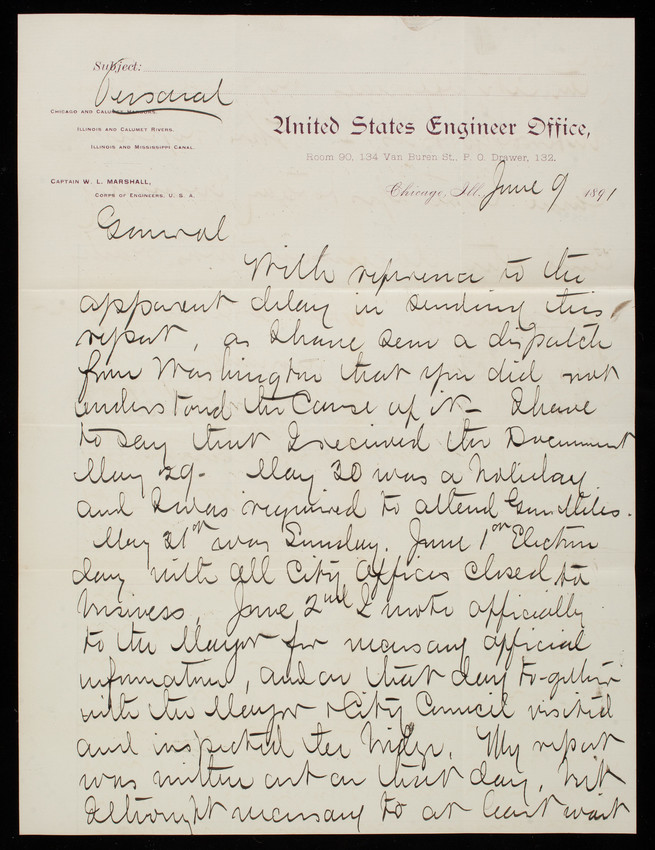 Subject:
Personal
CHICAGO AND CALUMET HARBORS.
ILLINOIS AND CALUMET RIVERS.
ILLINOIS AND MISSISSIPPI CANAL.
CAPTAIN W. L. MARSHALL,
CORPS OF ENGINEERS, U. S. A.
United States Engineer Office,
Room 90, 134 Van Buren St., P. O. Drawer, 132.
Chicago, Ill. June 9 1891
General
With reference to the
apparent delay in sending this
report, as I have seen a dispatch
from Washington that you did not
understand the cause of it - I have
to say that I received the Document
May 29 - May 30 was a holiday
and I was required to attend Gen Miles.
May 31st was Sunday. June 1st Election
day with all City Offices closed to
business. June 2nd I wrote officially
to the Mayor for necessary official
information, and on that day to-gether
with the Mayor & City Council visited
and inspected the bridge. My report
was written out on that day, but
I thought necessary to at least wait